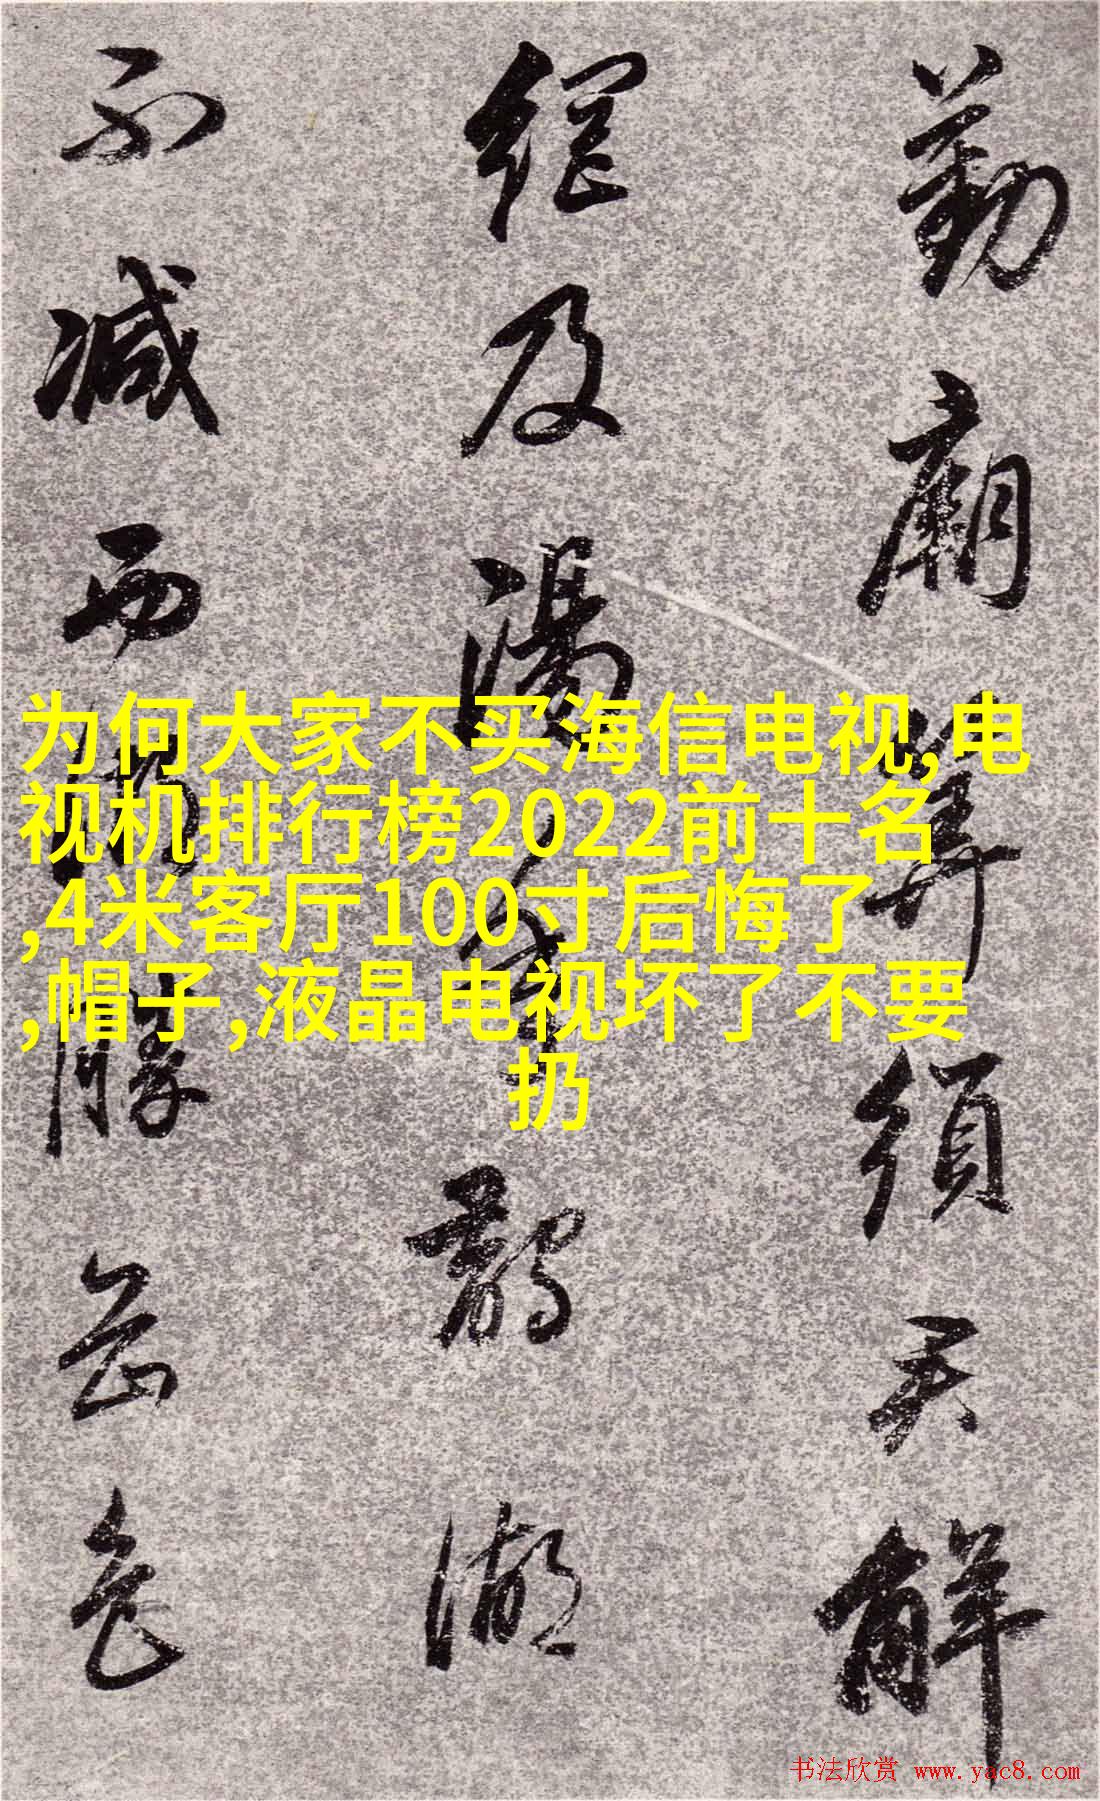 勤廟算須天解
網及湯
鵲湖
不減西
勝岳色
为何大家不买海信电视,电
视机排行榜2022前十名
,4米客厅100寸后悔了
,帽子,液晶电视坏了不要
扔
书法欣赏 www.yac8.com